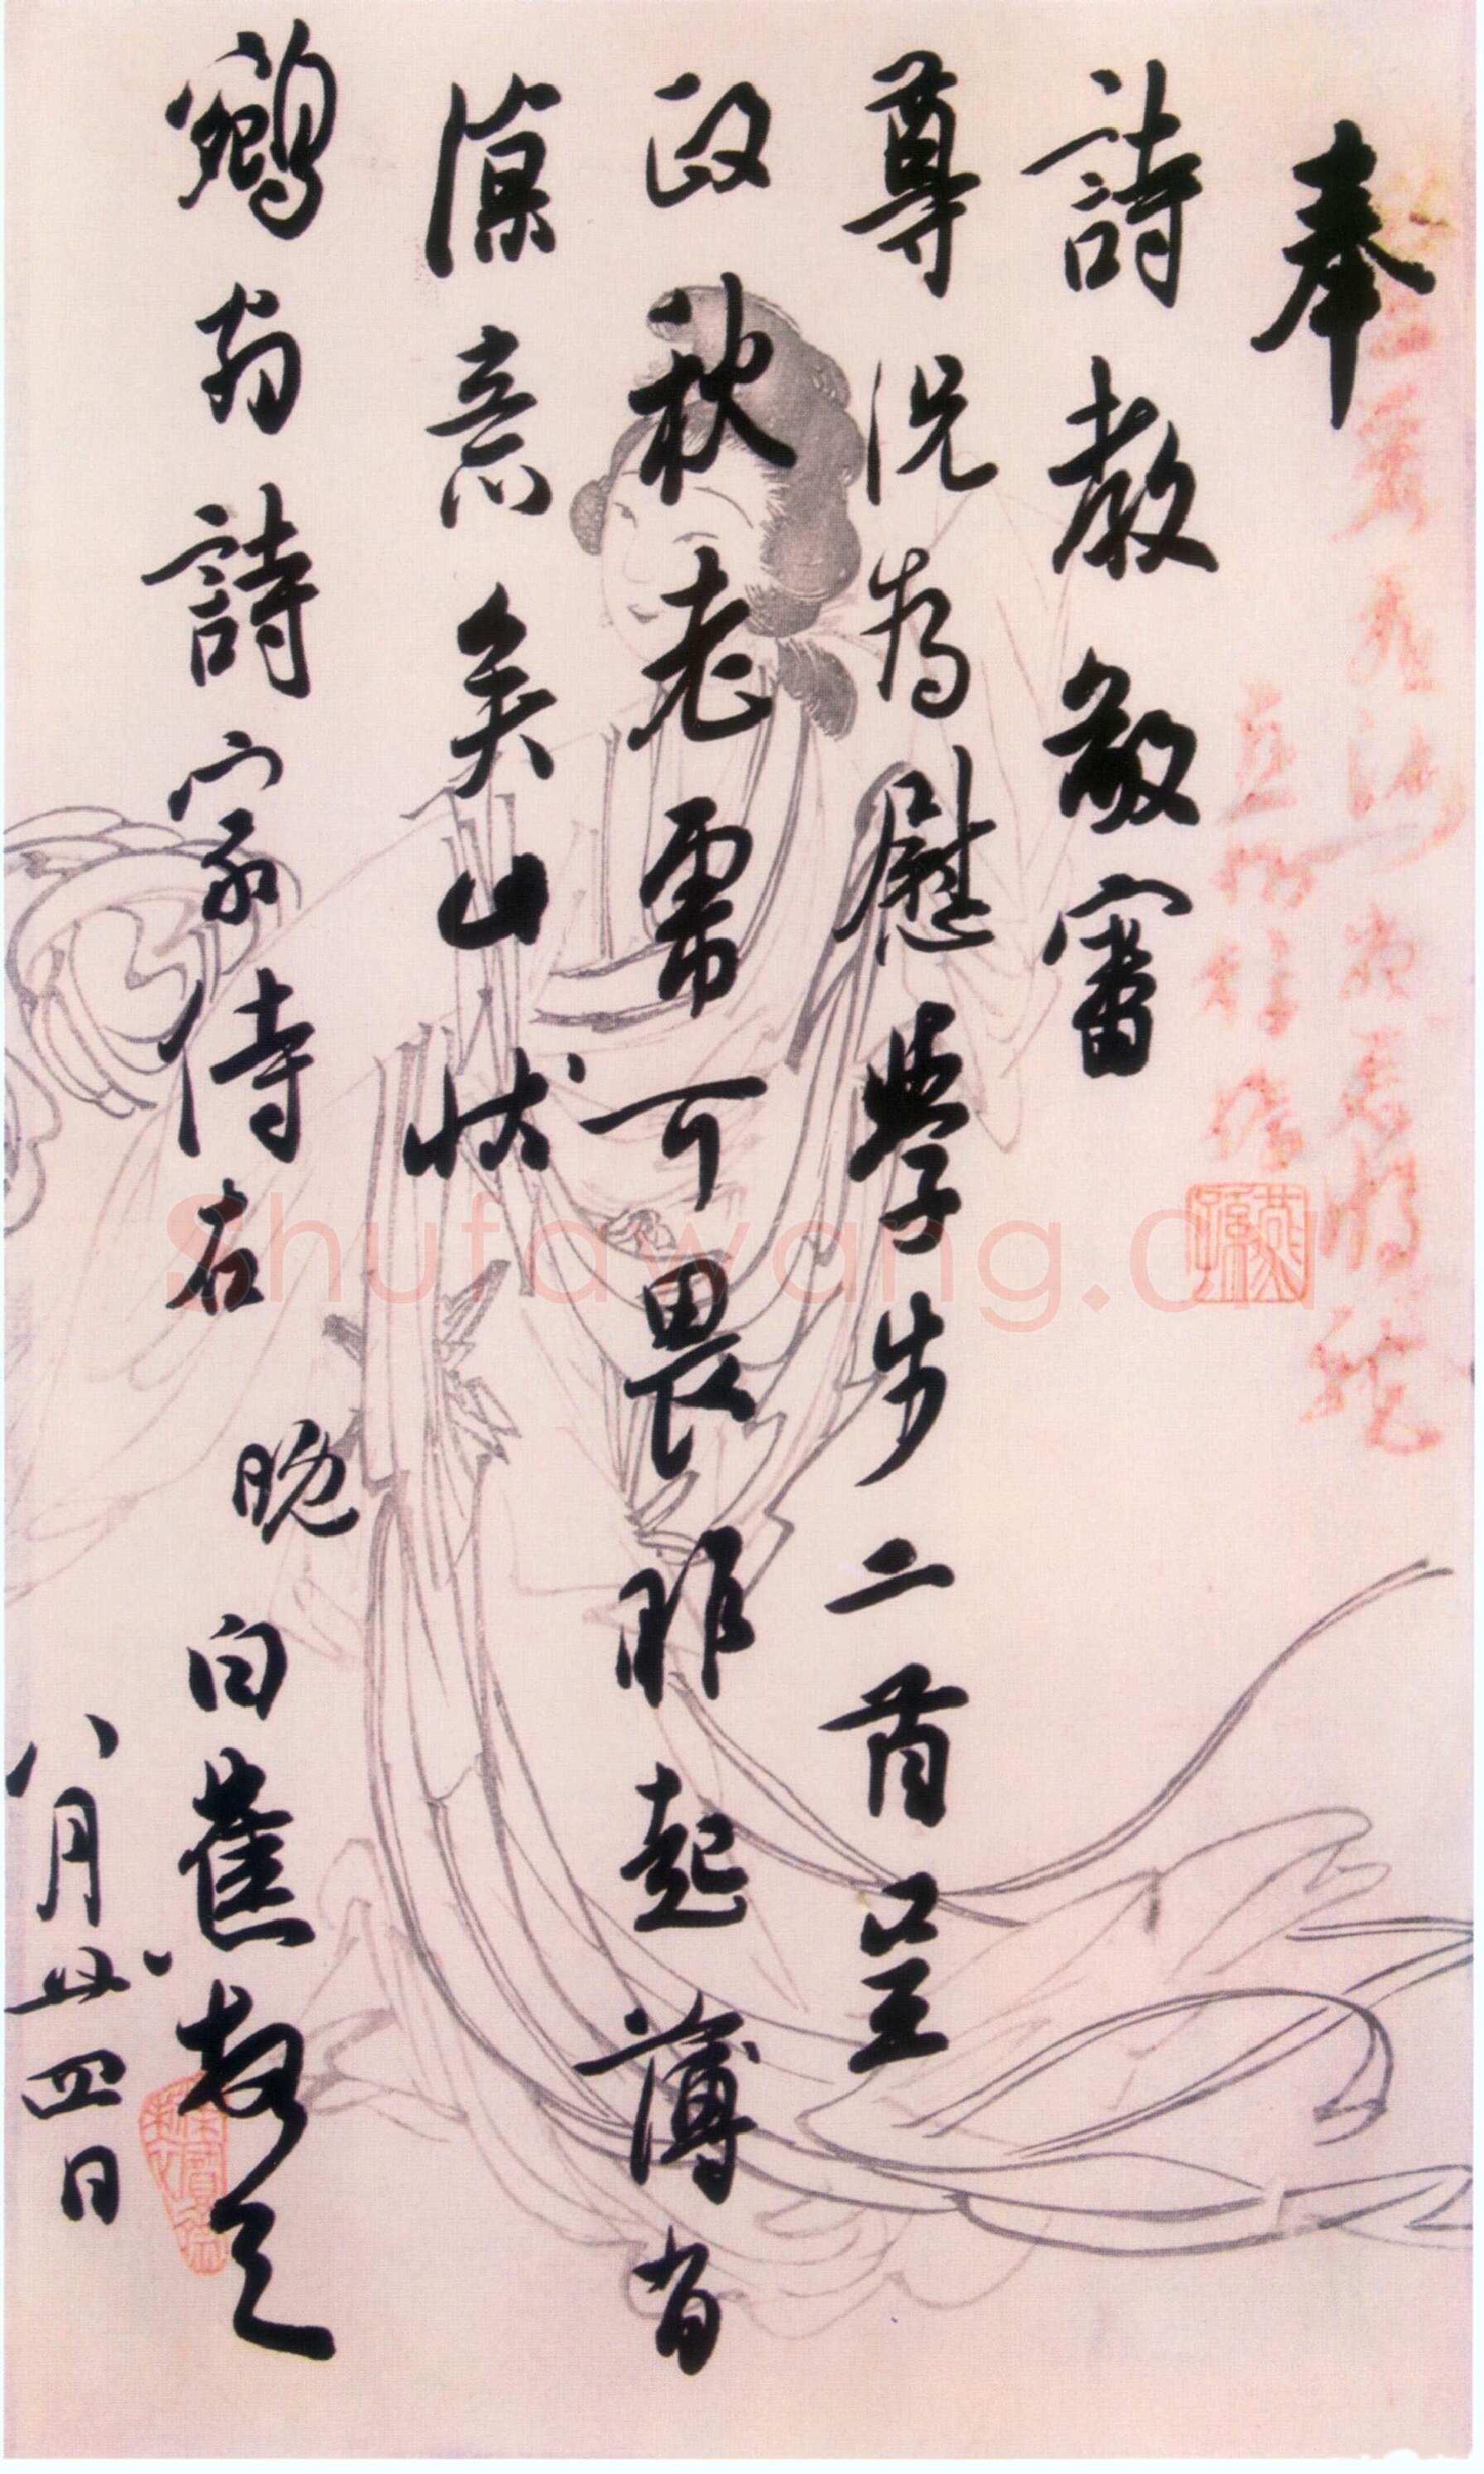 奉
詩教敬審
尊況為慰學步二首呈
政秋老虎可畏昨起薄有
涼意矣此狀
鵷翁詩家侍右 晚白蕉頓首
八月廿四日
Shufawang.cn